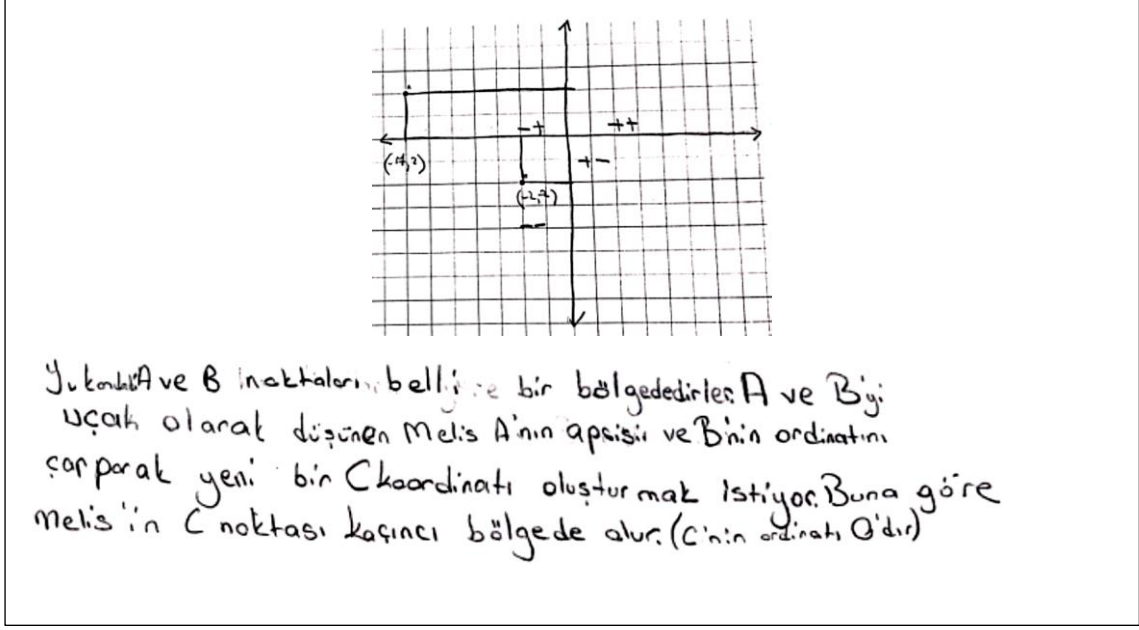 -+ ++
+-
(-7,2)
(-2,7)
--
Yukarıdaki A ve B noktaları belli bir bölgededirler. A ve B'yi
uçak olarak düşünen Melis A'nın apsisi ve B'nin ordinatını
çarparak yeni bir C koordinatı oluşturmak istiyor. Buna göre
Melis'in C noktası kaçıncı bölgede olur. (C'nin ordinatı 0'dır)